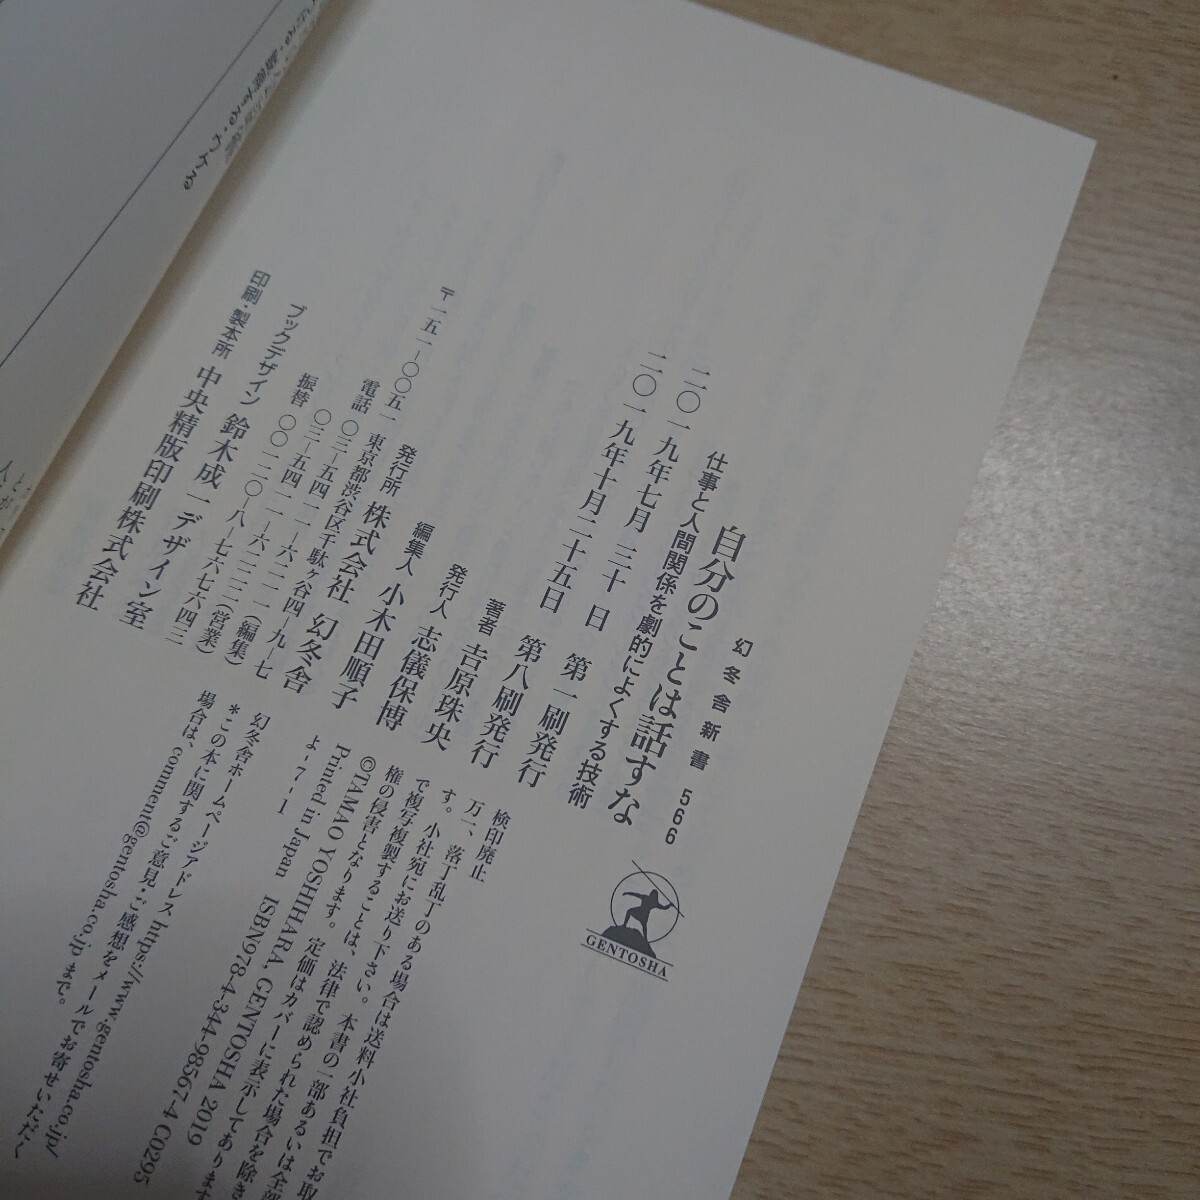 幻冬舎新書 566
自分のことは話すな
仕事と人間関係を劇的によくする技術
二〇一九年七月三十日 第一刷発行
二〇一九年十月二十五日 第八刷発行
著者 吉原珠央
発行人 志儀保博
編集人 小木田順子
発行所 株式会社 幻冬舎
〒一五一-〇〇五一 東京都渋谷区千駄ヶ谷四-九-七
電話 〇三-五四一一-六二一一(編集)
〇三-五四一一-六二二二(営業)
振替 〇〇一二〇-八-七六七六四三
ブックデザイン 鈴木成一デザイン室
印刷・製本所 中央精版印刷株式会社
GENTOSHA
検印廃止
万一、落丁乱丁のある場合は送料小社負担でお取
す。小社宛にお送り下さい。本書の一部あるいは全部
で複写複製することは、法律で認められた場合を除き
権の侵害となります。定価はカバーに表示してあります
©TAMAO YOSHIHARA, GENTOSHA 2019
Printed in Japan ISBN978-4-344-98567-4 C0295
よ-7-1
幻冬舎ホームページアドレス https://www.gentosha.co.jp/
*この本に関するご意見・ご感想をメールでお寄せいただく
場合は、comment@gentosha.co.jp まで。